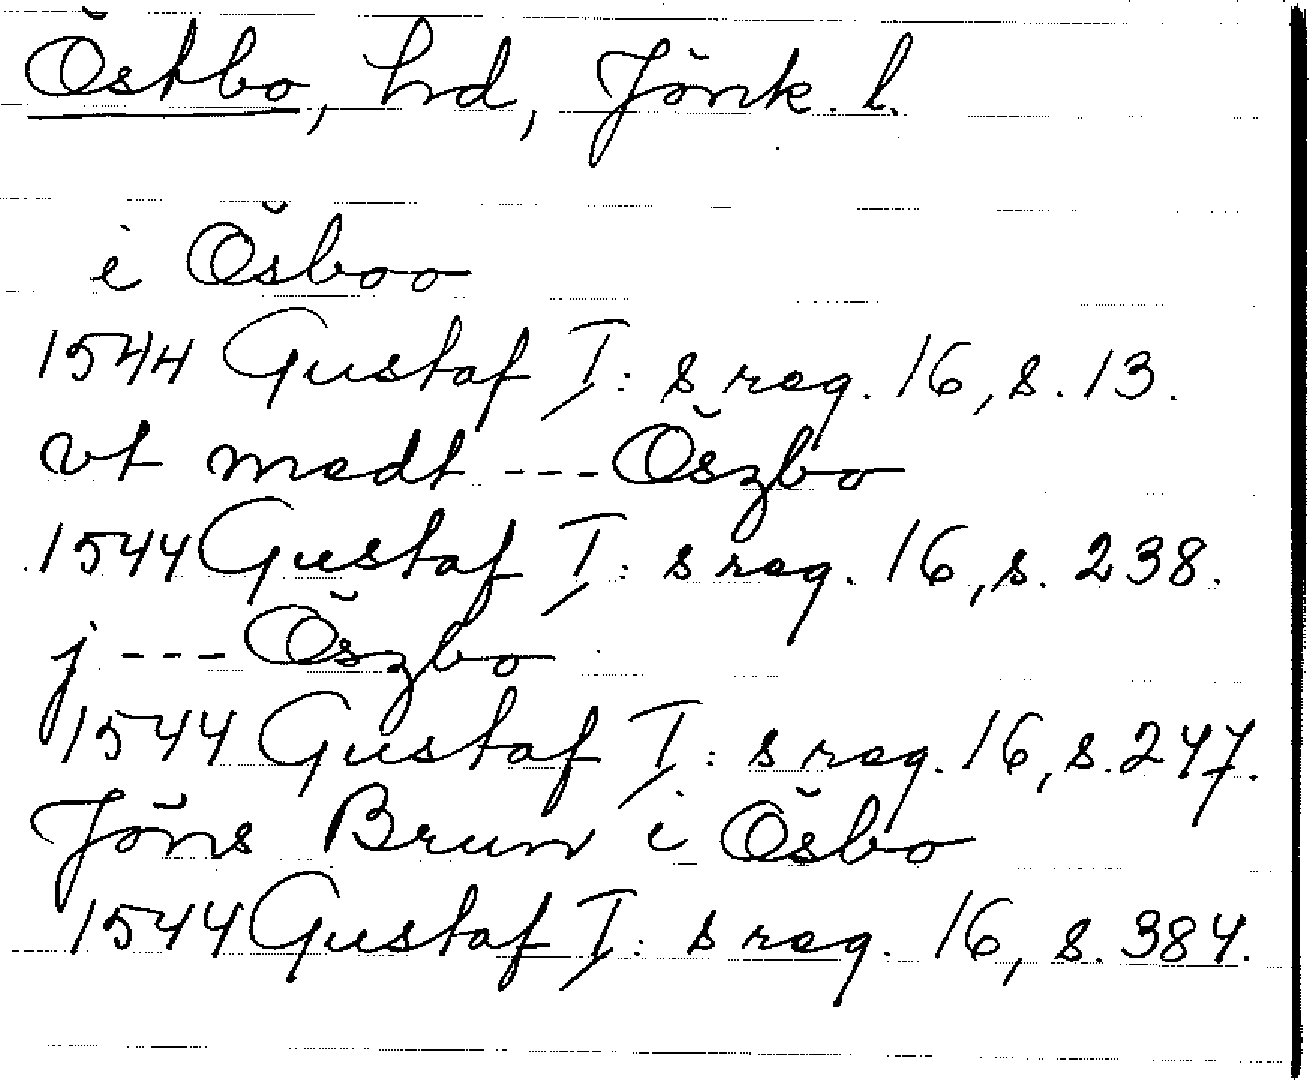 Östbo, hd, Jönk. l.
i Ösboo
1544 Gustaf I:s reg. 16, s. 13.
vt medt --- Öszbo
1544 Gustaf I:s reg. 16, s. 238.
j --- Öszbo
1544 Gustaf I:s reg. 16, s. 247.
Jöns Brun i Ösbo
1544 Gustaf I:s reg. 16, s. 384.